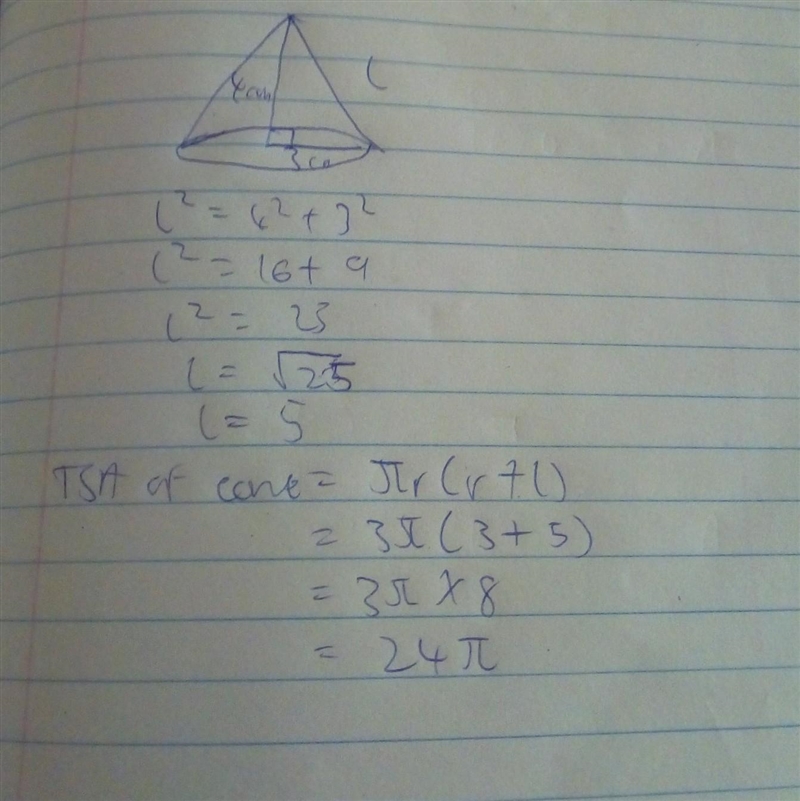 4cm
l
3cm
l² = 4² + 3²
l² = 16 + 9
l² = 25
l = √25
l = 5
TSA of cone = πr(r+l)
= 3π(3+5)
= 3π × 8
= 24π